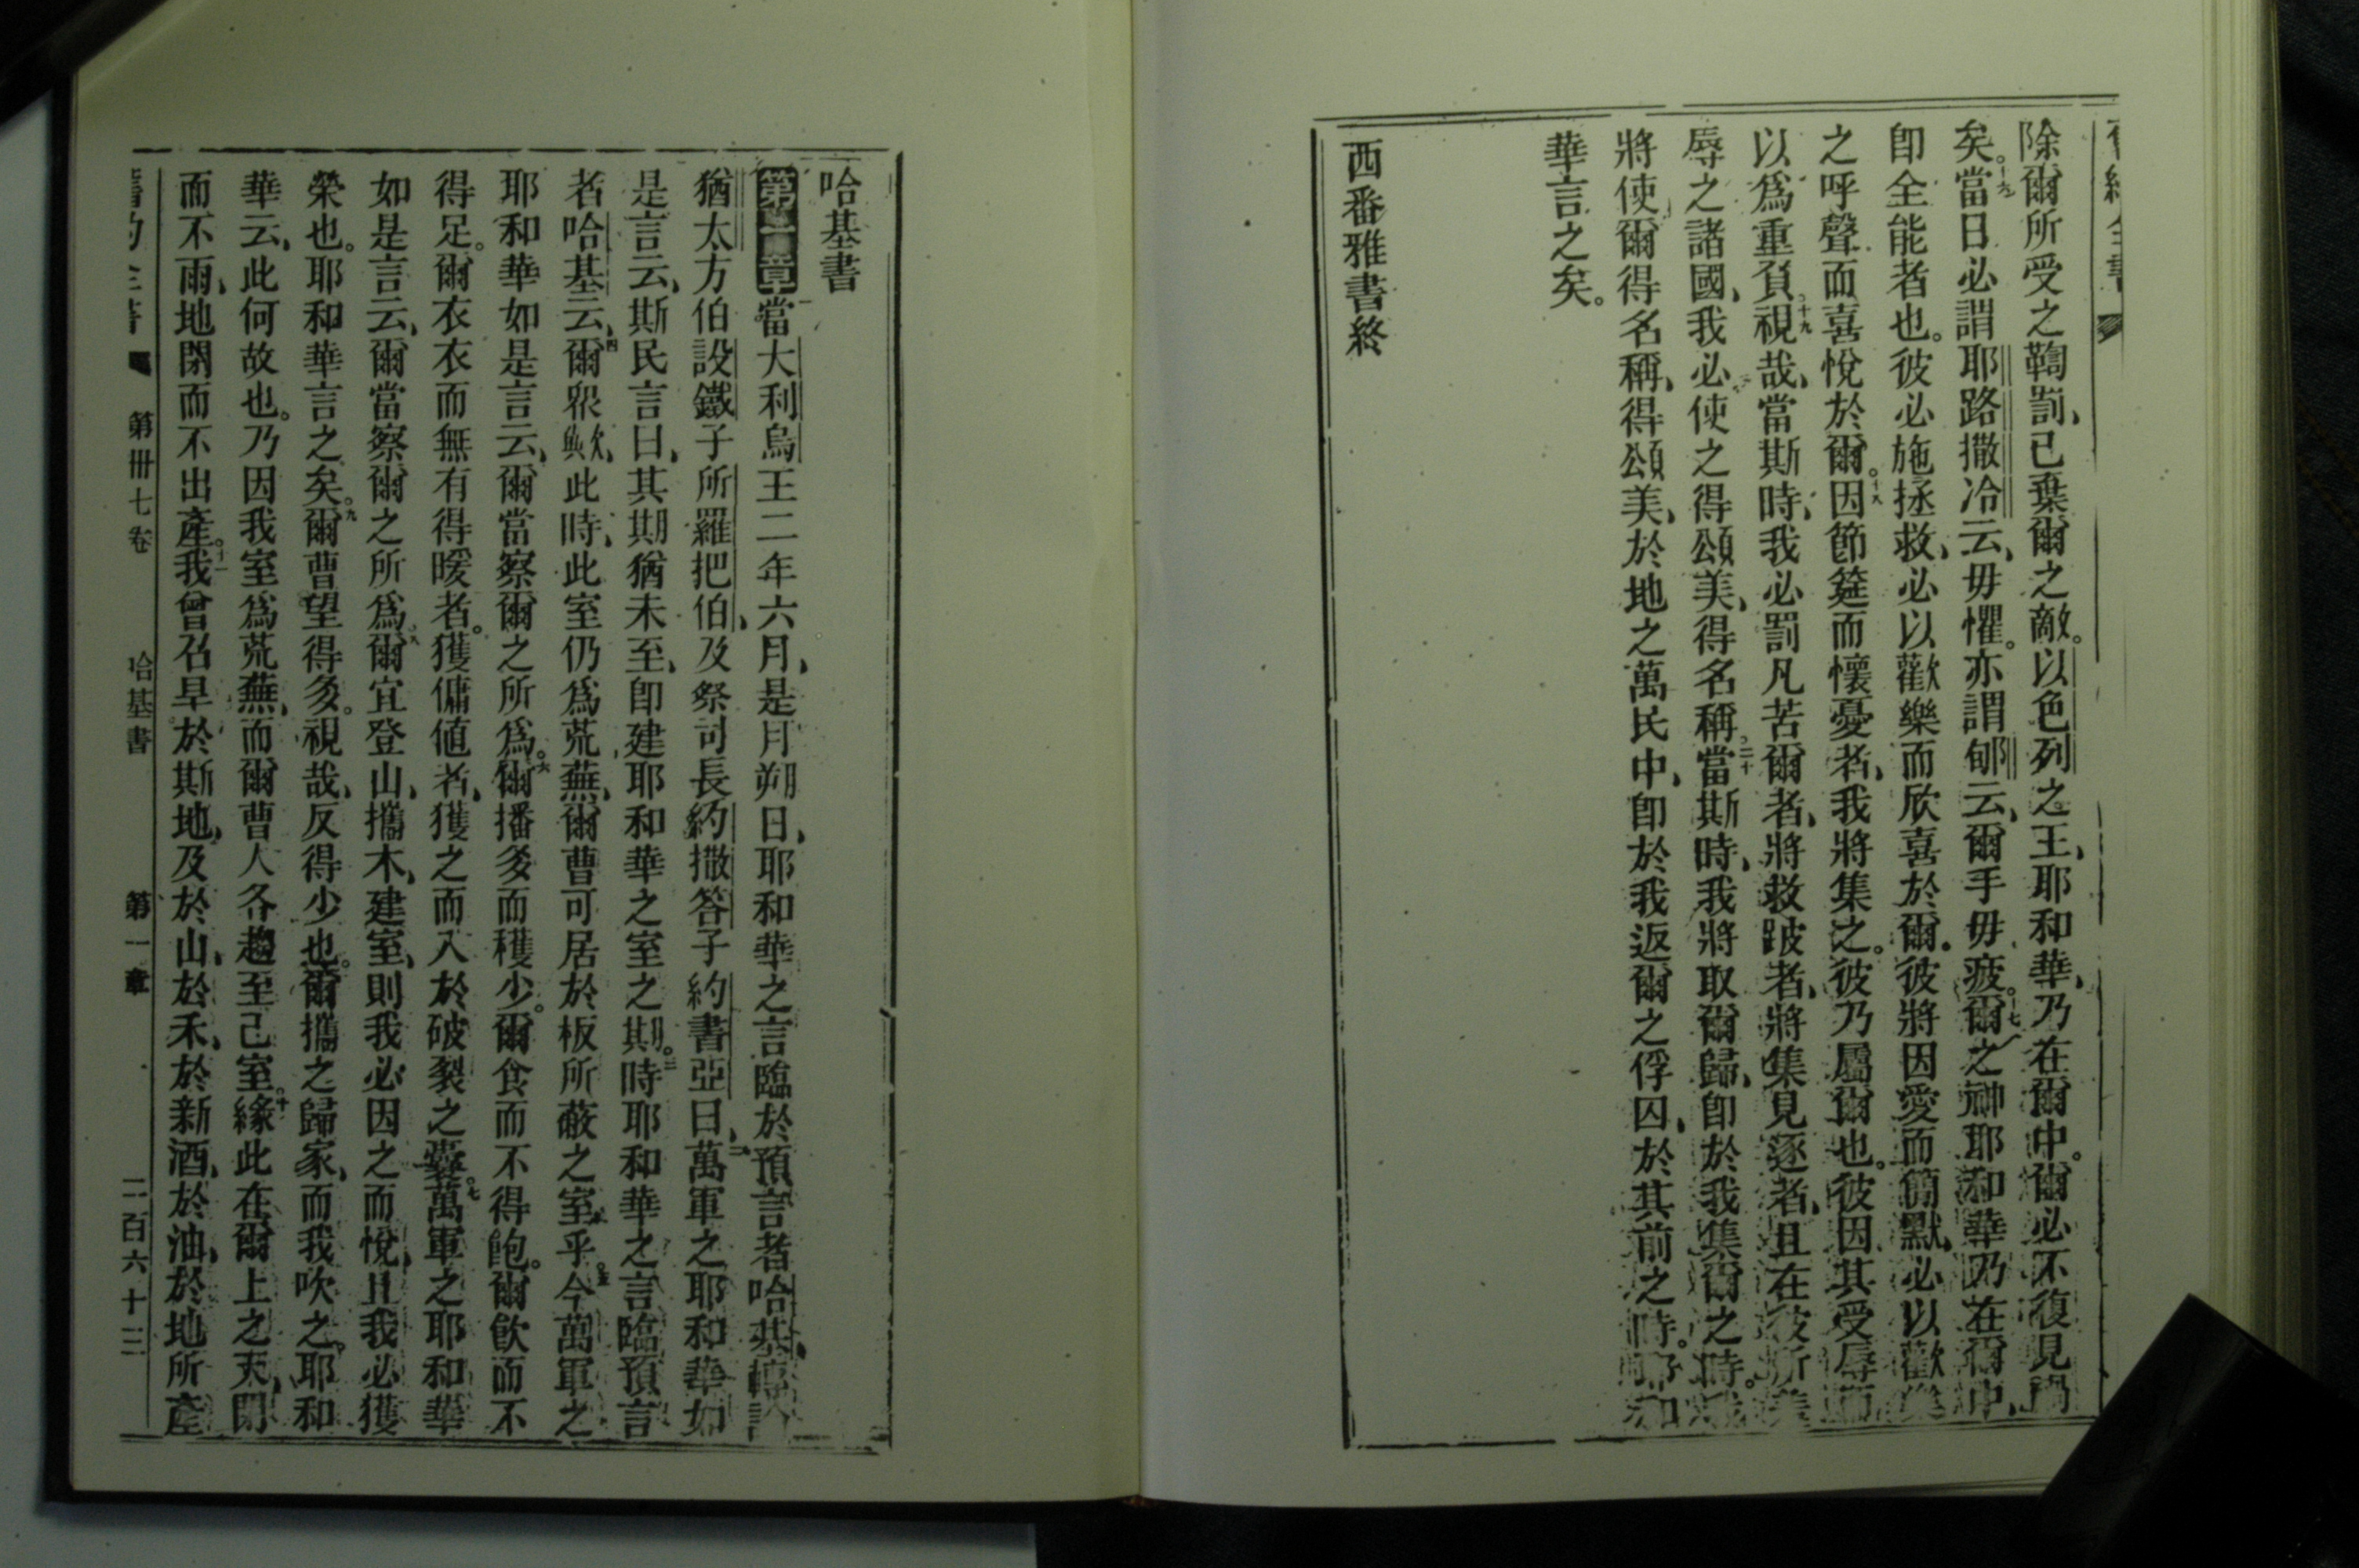 除爾所受之鞫罰、已棄爾之敵。以色列之王、耶和華、乃在爾中。爾必不復見禍
矣。當日必謂耶路撒冷云、毋懼。亦謂郇云、爾手毋疲。十七爾之神耶和華乃在爾中、
卽全能者也。彼必施拯救、必以歡樂而欣喜於爾。彼將因愛而簡默、必以歡樂
之呼聲而喜悅於爾。十八因節筵而懷憂者、我將集之。彼乃屬爾也。彼因其受辱而
以爲重負。十九視哉、當斯時、我必罰凡苦爾者、將救跛者、將集見逐者、且在彼所羞
辱之諸國、我必使之得頌美、得名稱。二十當斯時、我將取爾歸、卽於我集爾之時。我
將使爾得名稱、得頌美、於地之萬民中、卽於我返爾之俘囚、於其前之時。耶和
華言之矣。
西番雅書終
哈基書
第一章一當大利烏王二年六月、是月朔日、耶和華之言臨於預言者哈基、
猶太方伯設鐵子所羅把伯、及祭司長約撒答子約書亞曰、二萬軍之耶和華如
是言云、斯民言曰、其期猶未至、卽建耶和華之室之期。三時耶和華之言臨預言
者哈基云、四爾衆歟、此時、此室仍爲荒蕪、爾曹可居於板所蔽之室乎。五今萬軍之
耶和華如是言云、爾當察爾之所爲。六爾播多而穫少。爾食而不得飽。爾飮而不
得足。爾衣衣而無有得暖者。獲傭値者、獲之而入於破裂之囊。七萬軍之耶和華
如是言云、爾當察爾之所爲。八爾宜登山、攜木、建室、則我必因之而悅、且我必獲
榮也。耶和華言之矣。九爾曹望得多。視哉、反得少也。爾攜之歸家、而我吹之。耶和
華云、此何故也。乃因我室爲荒蕪、而爾曹人各趨至己室。十緣此在爾上之天、閉
而不雨、地閉而不出產。十一我曾召旱於斯地、及於山、於禾、於新酒、於油、於地所產
第卅七卷 哈基書 第一章 二百六十三